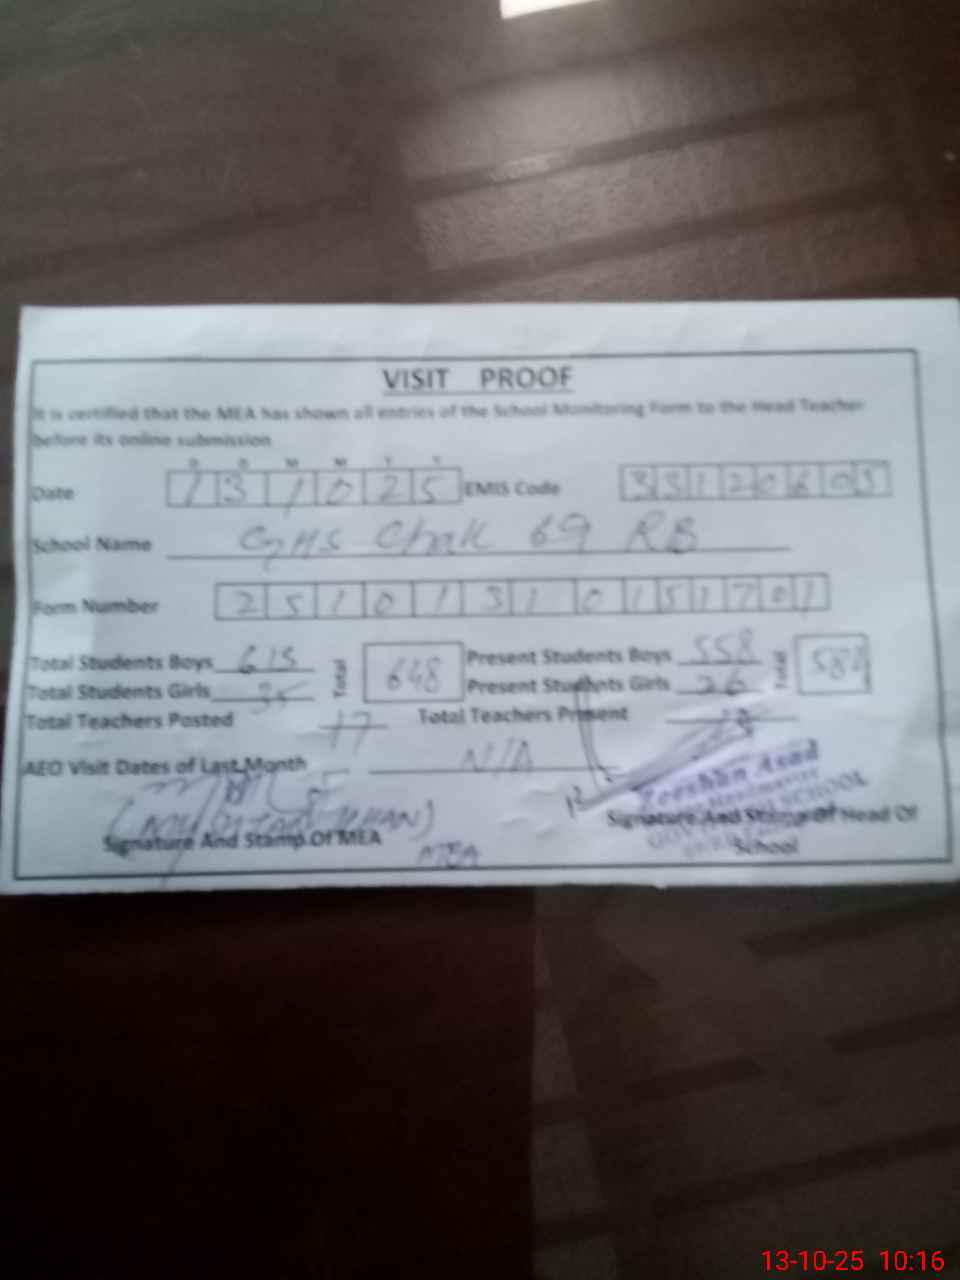 VISIT PROOF
It is certified that the MEA has shown all entries of the School Monitoring Form to the Head Teacher
before its online submission
D D M M Y Y
Date 1 3 1 0 2 5 EMIS Code 3 3 1 2 0 6 0 5
School Name GHS Chak 69 RB
Form Number 2 5 1 0 1 3 1 0 1 5 1 7 0 1
Total Students Boys 613 Total 648 Present Students Boys 558 Total
Total Students Girls 35 Present Students Girls 26
Total Teachers Posted 17 Total Teachers Present
AEO Visit Dates of Last Month N/A
Zeeshan Asad
SCHOOL
Signature And Stamp Of MEA MEA
Signature And Stamp Of Head Of
School
13-10-25 10:16